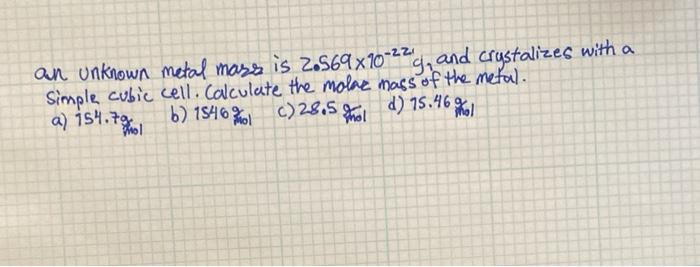 an unknown metal mass is 2.569x10⁻²² g, and crystalizes with a
Simple cubic cell. Calculate the molar mass of the metal.
a) 154.7 g/mol b) 1546 g/mol c) 28.5 g/mol d) 15.46 g/mol